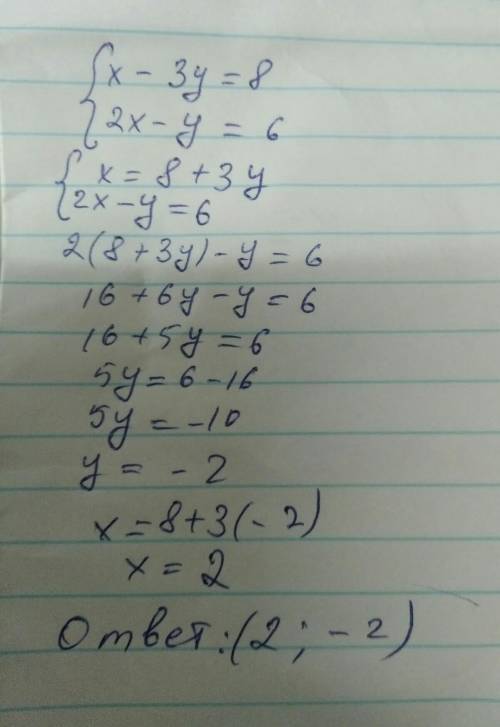 { x - 3y = 8
2x - y = 6
{ x = 8 + 3y
2x - y = 6
2(8 + 3y) - y = 6
16 + 6y - y = 6
16 + 5y = 6
5y = 6 - 16
5y = -10
y = - 2
x = 8 + 3(- 2)
x = 2
Ответ: (2 ; - 2)